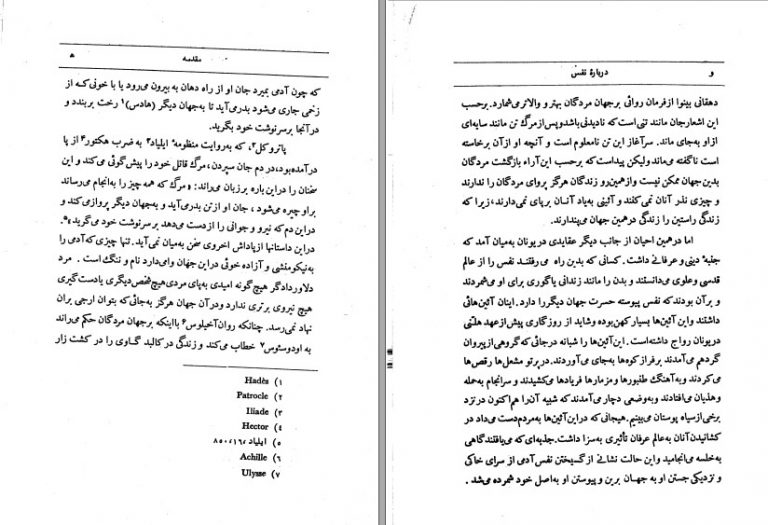 مقدمه ه
که چون آدمی بمیرد جان او از راه دهان به بیرون می‌رود یا با خونی که از
زخمی جاری می‌شود بدرمی‌آید تا به‌جهان دیگر (هادس)۱ رخت بربندد و
در آنجا بر سرنوشت خود بگرید.
پاتروکل۲، که به‌روایت منظومهٔ ایلیاد۳ به ضرب هکتور۴ از پا
درآمده بود، در دم جان سپردن، مرگ قاتل خود را پیش‌گوئی می‌کند و این
سخنان را در این باره بر زبان می‌راند: «مرگ که همه چیز را به‌انجام می‌رساند
بر او چیره می‌شود، جان او از تن بدر می‌آید و به‌جهان دیگر پرواز می‌کند و
در این دم که نیرو و جوانی را از دست می‌دهد بر سرنوشت خود می‌گرید»۵.
در این داستانها از پاداش اخروی سخن به‌میان نمی‌آید. تنها چیزی که آدمی را
به‌نیکو منشی و آزاده خوئی در این جهان وامی‌دارد نام و ننگ است. مرد
دلاور دادگر هیچ گونه امیدی به‌پای مردی هیچ شخص دیگری یا دستگیری
هیچ نیروی برتری ندارد و در آن جهان هرگز به‌جائی که بتوان ارجی بر آن
نهاد نمی‌رسد. چنانکه روان آخیلوس۶ با اینکه بر جهان مردگان حکم می‌راند
به اودوسئوس۷ خطاب می‌کند و زندگی در کالبد گاوی را در کشت زار
۱) Hadès
۲) Patrocle
۳) Iliade
۴) Hector
۵) ایلیاد ۱۶، ۸۵۰
۶) Achille
۷) Ulysse
و دربارهٔ نفس
دهقانی بینوا از فرمان روائی بر جهان مردگان بهتر و والاتر می‌شمارد. بر حسب
این اشعار جان مانند تنی است که نادیدنی باشد و پس از مرگ تن مانند سایه‌ای
از او به‌جای ماند. سرآغاز این تن نامعلوم است و آنچه او از آن برخاسته
است ناگفته می‌ماند ولیکن پیداست که بر حسب این آراء بازگشت مردگان
بدین جهان ممکن نیست و از همین رو زندگان هرگز بروای مردگان را ندارند
و چیزی نذر آنان نمی‌کنند و آئینی به‌یاد آنان بر پای نمی‌دارند، زیرا که
زندگی راستین را زندگی در همین جهان می‌پندارند.
اما در همین احیان از جانب دیگر عقایدی در یونان به‌میان آمد که
جنبهٔ دینی و عرفانی داشت. کسانی که بدین راه می‌رفتند نفس را از عالم
قدسی و علوی می‌دانستند و بدن را مانند زندانی یا گوری برای او می‌شمردند
و بر آن بودند که نفس پیوسته حسرت جهان دیگر را دارد. اینان آئین‌هائی
داشتند و این آئین‌ها بسیار کهن بوده و شاید از روزگاری پیش از عهد هلنی
در یونان رواج داشته است. این آئین‌ها را شبانه در جائی که گروهی از پیروان
گرد هم می‌آمدند بر فراز کوه‌ها به‌جای می‌آوردند. در پرتو مشعل‌ها رقص‌ها
می‌کردند و به‌آهنگ طنبورها و مزمارها فریادها می‌کشیدند و سرانجام به‌حمله
و هذیان می‌افتادند و به‌وضعی دچار می‌آمدند که شبیه آن را هم اکنون در نزد
برخی از سیاه پوستان می‌بینیم. هیجانی که در این آئین‌ها به‌مردم دست می‌داد در
کشانیدن آنان به‌عالم عرفان تأثیری به‌سزا داشت. جذبه‌ای که می‌یافتند گاهی
به خلسه می‌انجامید و این حالت نشانی از گسیختن نفس آدمی از سرای خاکی
و نزدیکی جستن او به جهان برین و پیوستن او به‌اصل خود شمرده می‌شد.